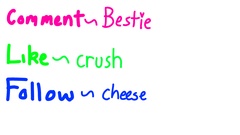 Comment ~ Bestie
Like ~ crush
Follow ~ cheese